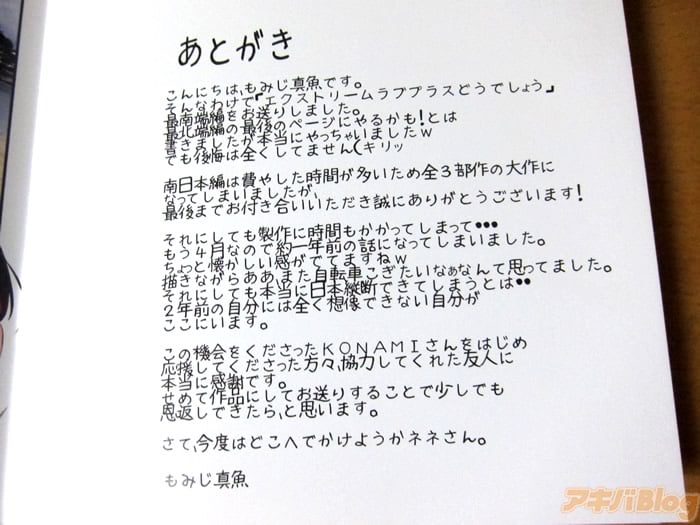 あとがき
こんにちは、もみじ真魚です。
そんなわけで「エクストリームラブプラスどうでしょう」
最南端編をお送りしました。
最北端編の最後のページにやるかも!とは
書きましたが本当にやっちゃいましたw
でも後悔は全くしてません(キリッ
南日本編は費やした時間が多いため全3部作の大作に
なってしまいましたが、
最後までお付き合いいただき誠にありがとうございます!
それにしても製作に時間もかかってしまって・・・
もう4月なので約一年前の話になってしまいました。
ちょっと懐かしい感がでてますねw
描きながらああ、また自転車こぎたいなぁなんて思ってました。
それにしても本当に日本縦断できてしまうとは・・
2年前の自分には全く想像できない自分が
ここにいます。
この機会をくださったKONAMIさんをはじめ
応援してくださった方々、協力してくれた友人に
本当に感謝です。
せめて作品にしてお送りすることで少しでも
恩返しできたら、と思います。
さて、今度はどこへでかけようかネネさん。
もみじ真魚
アキバBlog